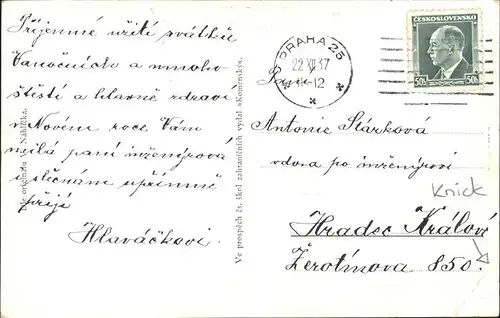 Příjemné užití svátků
Vanočních a mnoho
štěstí a hlavně zdraví
v Novém roce Vám
milá paní inženýrová
i slečnám upřímně
přejí
Hlaváčkovi.
Dle originálu V. Nahlíčka.
Ve prospěch čs. škol zahraničních vydal »Komenský«.
PRAHA 25
22 XII 37
-12
ČESKOSLOVENSKO
50h 50h
Paní
Antonie Stárková
vdova po inženýrovi
Knick
Hradec Králové
Žerotínova 850.